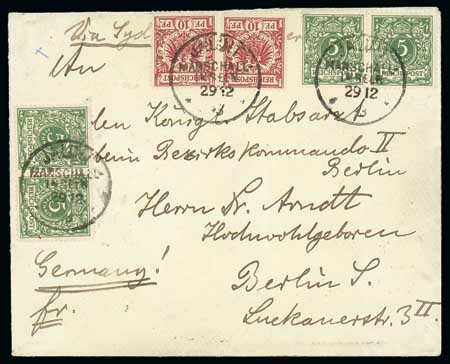 Via Syd
PF. 10 PF.
PF. 10 PF.
REICHSPOST
REICHSPOST
5 5
REICHSPOST REICHSPOST
JALUIT
MARSCHALL-
INSELN
29 12
JALUIT
MARSCHALL-
INSELN
29 12
An
den Königl. Stabsarzt
beim Bezirkskommando II
Berlin
5
REICHSPOST
5
REICHSPOST
JALUIT
MARSCHALL-
INSELN
Herrn Dr. Arndt
Hochwohlgeboren
Germany!
Berlin S.
fr.
Luckauerstr. 3 II.